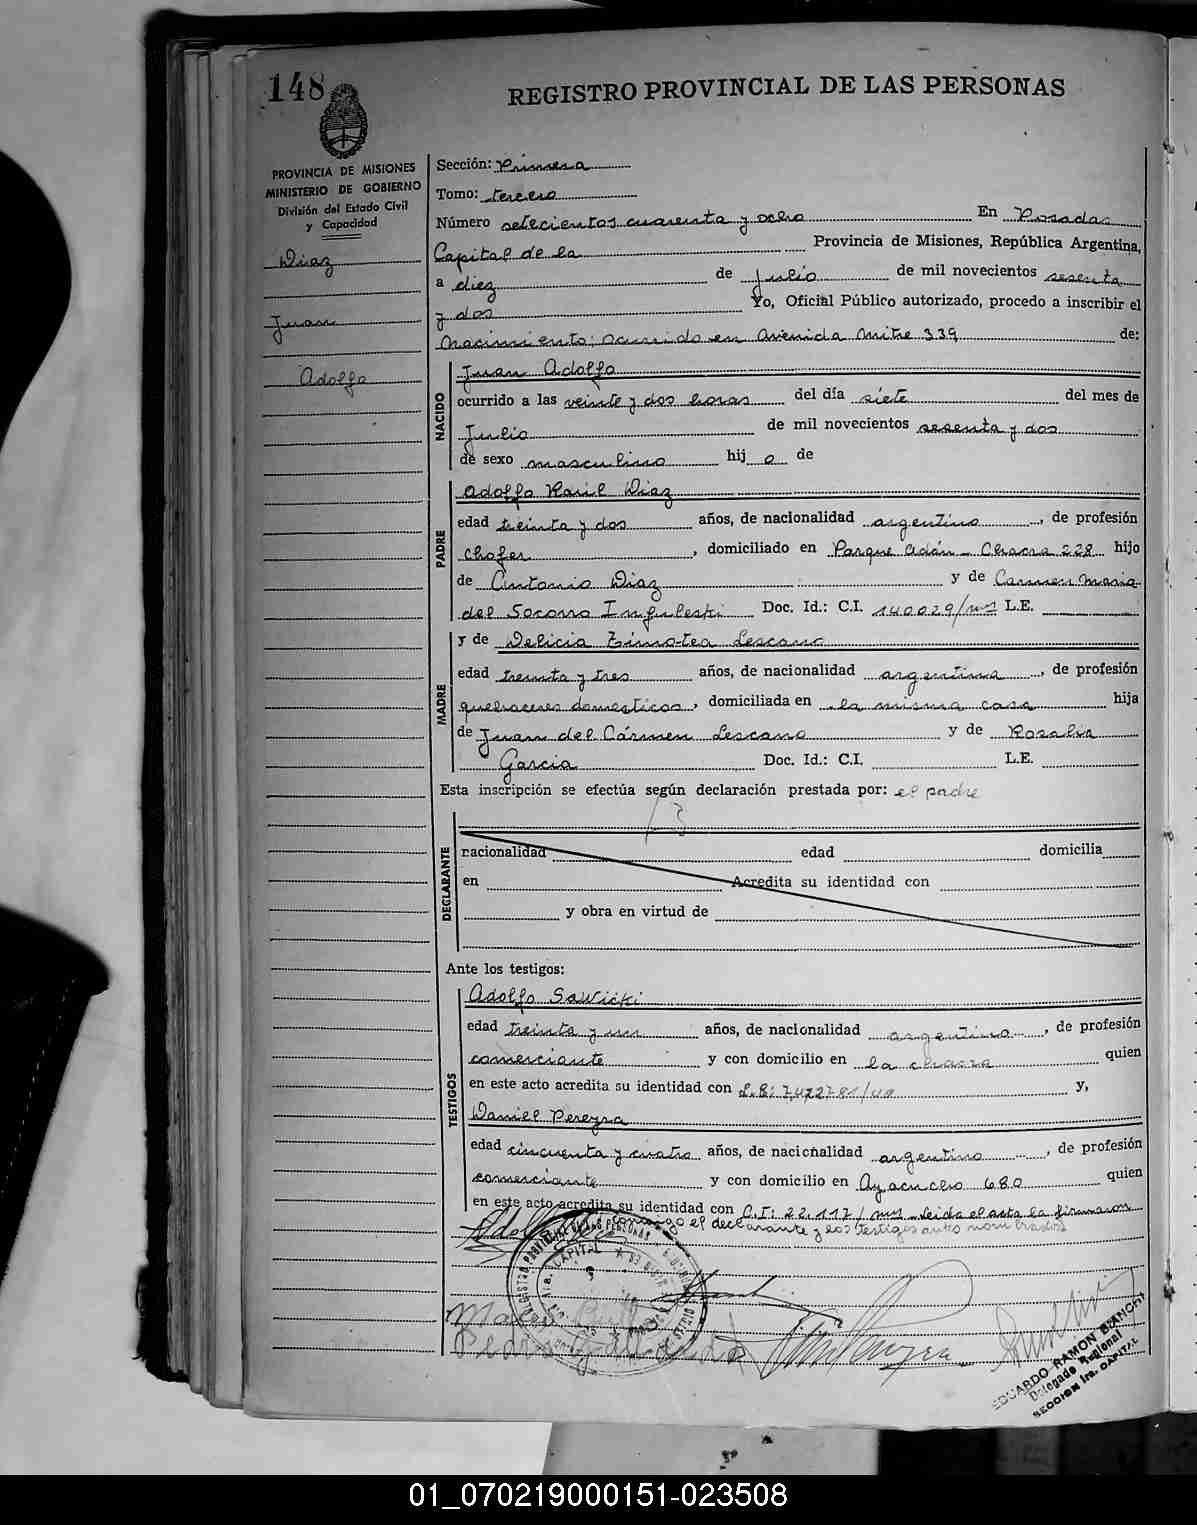 148
REGISTRO PROVINCIAL DE LAS PERSONAS
PROVINCIA DE MISIONES
MINISTERIO DE GOBIERNO
División del Estado Civil
y Capacidad
Diaz
Juan
Adolfo
Sección: Primera
Tomo: tercero
Número setecientos cuarenta y ocho En Posadas
Capital de la Provincia de Misiones, República Argentina,
a diez de Julio de mil novecientos sesenta
y dos Yo, Oficial Público autorizado, procedo a inscribir el
nacimiento; ocurrido en Avenida Mitre 339 de:
NACIDO
Juan Adolfo
ocurrido a las veinte y dos horas del día siete del mes de
Julio de mil novecientos sesenta y dos
de sexo masculino hij o de
PADRE
Adolfo Raul Diaz
edad treinta y dos años, de nacionalidad argentino, de profesión
chofer, domiciliado en Parque Adán - Chacra 228 hijo
de Antonio Diaz y de Carmen Maria
del Socorro Doc. Id.: C.I. 140029/ms L.E.
MADRE
y de Delicia Timotea Lescano
edad treinta y tres años, de nacionalidad argentina, de profesión
quehaceres domesticos, domiciliada en la misma casa hija
de Juan del Cármen Lescano y de Rosalia
Garcia Doc. Id.: C.I. L.E.
Esta inscripción se efectúa según declaración prestada por: el padre
DECLARANTE
nacionalidad edad domicilia
en Acredita su identidad con
y obra en virtud de
Ante los testigos:
TESTIGOS
Adolfo Sawicki
edad treinta y un años, de nacionalidad argentino, de profesión
comerciante y con domicilio en la chacra quien
en este acto acredita su identidad con y,
Daniel Pereyra
edad cincuenta y cuatro años, de nacionalidad argentino, de profesión
comerciante y con domicilio en Ayacucho 680 quien
en este acto acredita su identidad con C.I: 22.117/ms Leida el acta la firmaron
conmigo el declarante y los testigos antes nombrados
CAPITAL
EDUARDO RAMON BIANCHI
Delegado Regional
SECCION 1ra. CAPITAL
01_070219000151-023508